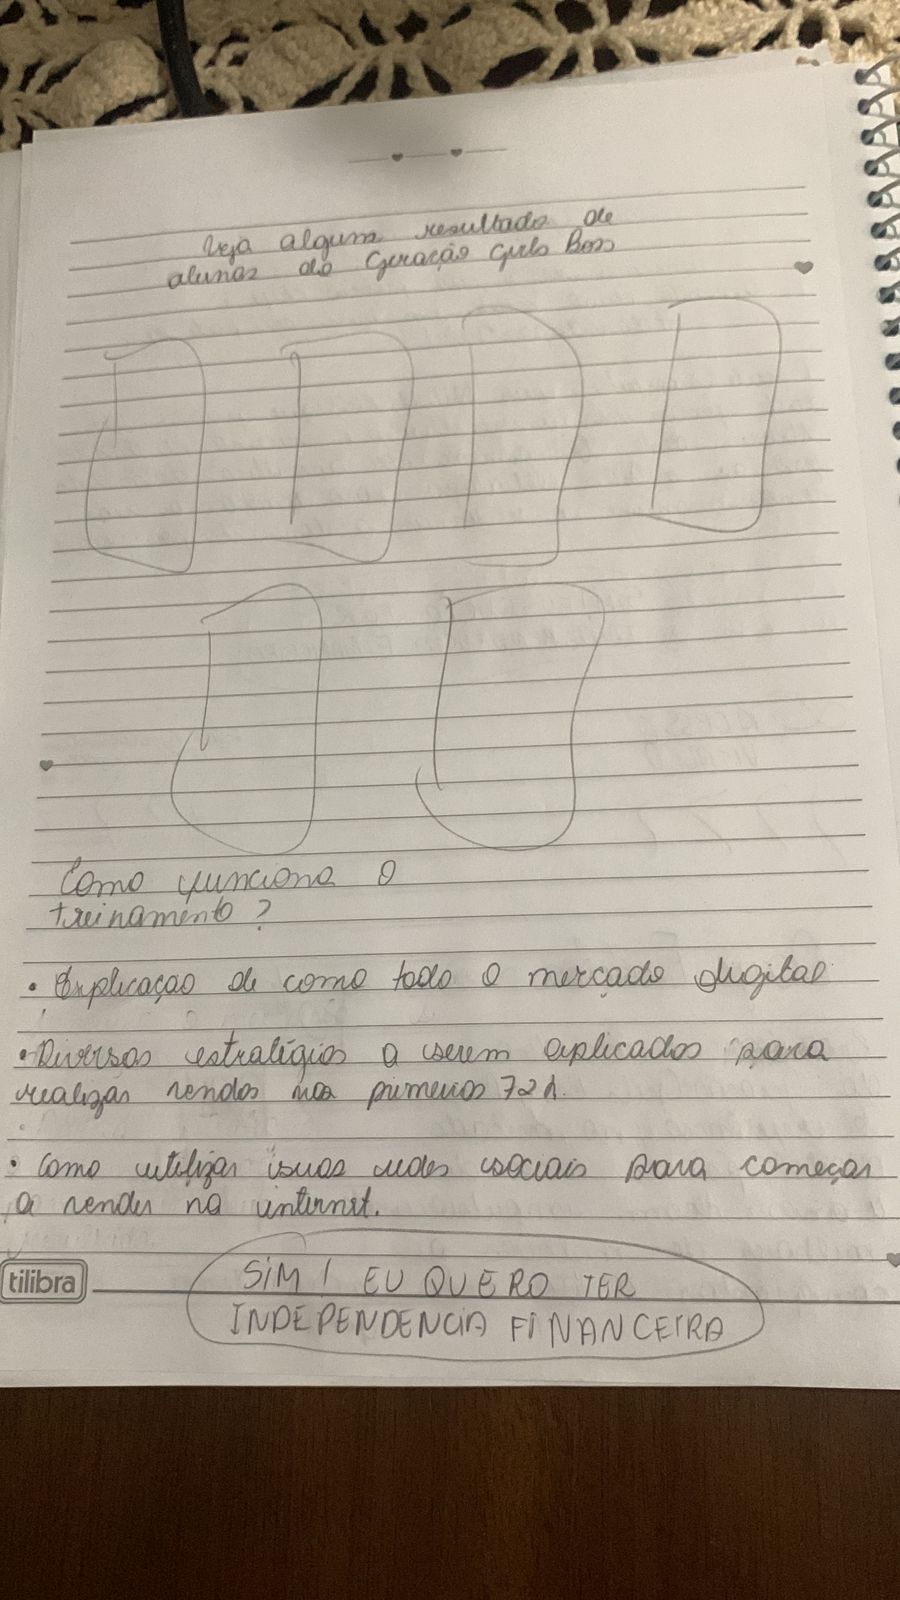 Veja alguns resultado de
alunas do Geração Girls Boss
Como funciona o
treinamento?
• Explicação de como todo o mercado digital
• Diversas estratégias a serem aplicadas para
realizar vendas nas primeiras 72h.
• Como utilizar suas redes sociais para começar
a vender na internet.
tilibra
SIM! EU QUERO TER
INDEPENDENCIA FINANCEIRA